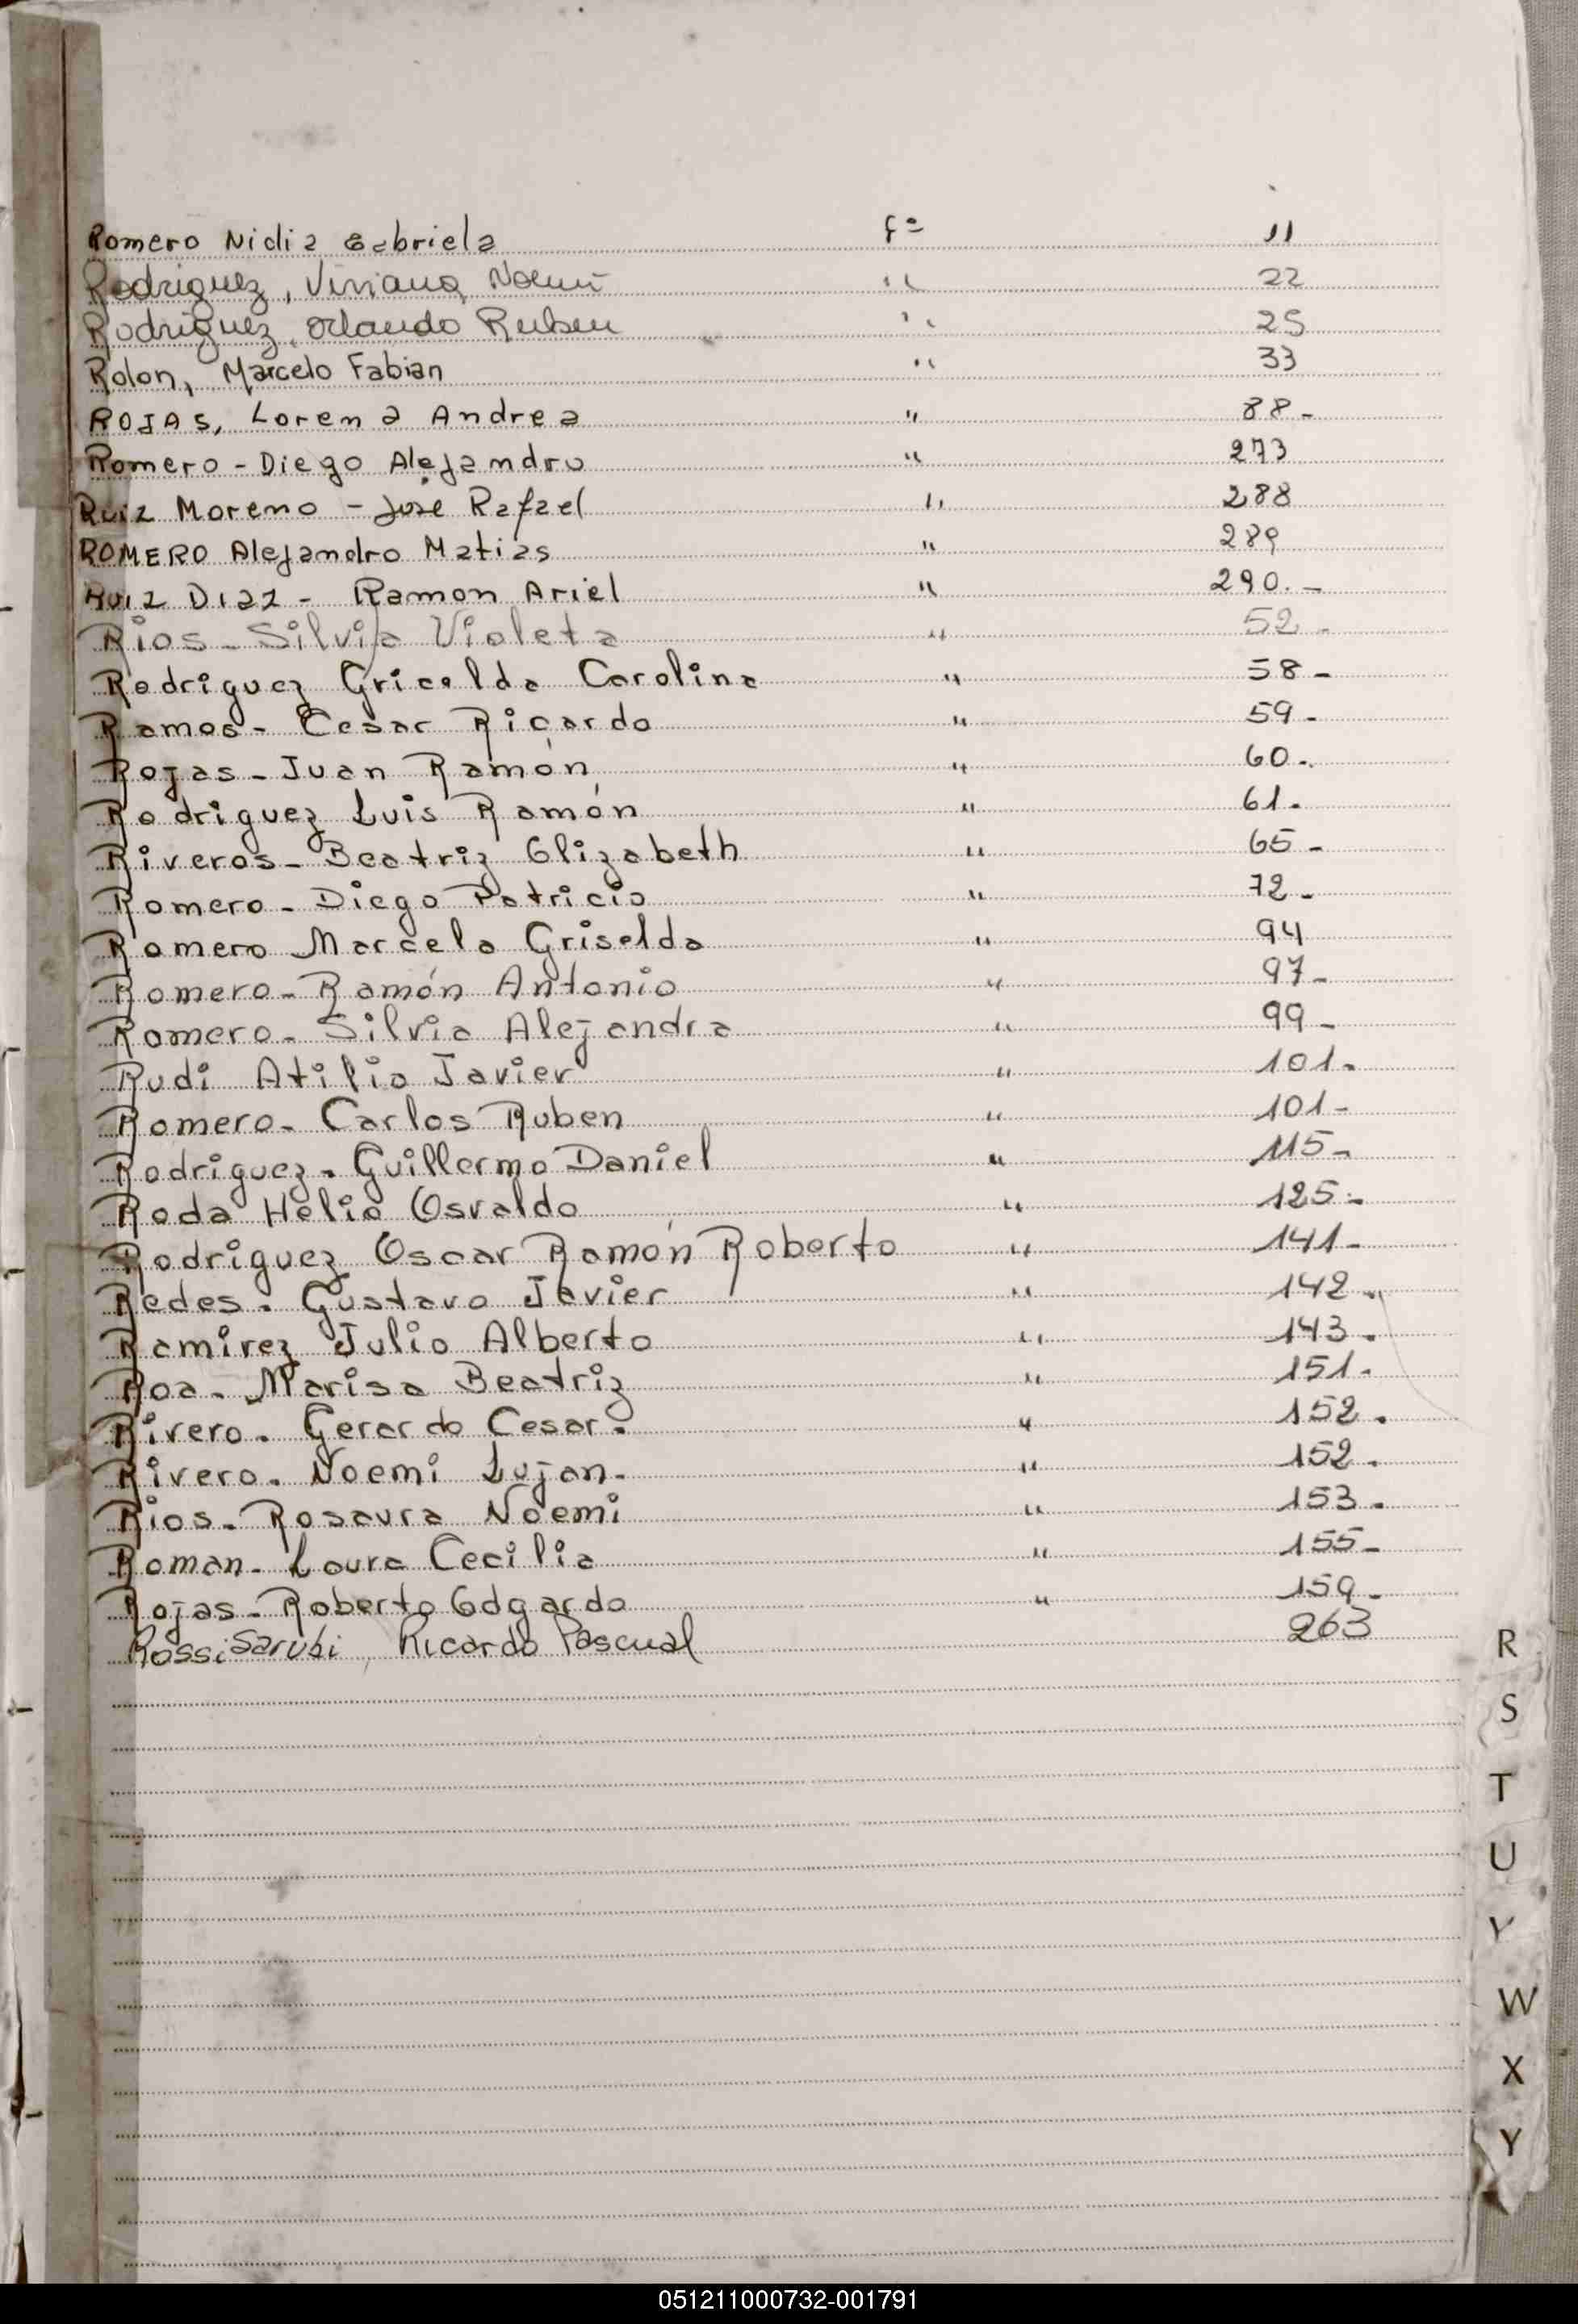 Romero Nidia Gabriela fº 11
Rodriguez, Viviana Noemi " 22
Rodriguez, Orlando Ruben " 25
Rolon, Marcelo Fabian " 33
ROJAS, Lorena Andrea " 88-
Romero - Diego Alejandro " 273
Ruiz Moreno - José Rafael " 288
ROMERO Alejandro Matias " 289
RUIZ DIAZ - Ramon Ariel " 290.-
Rios - Silvia Violeta " 52-
Rodriguez Gricelda Carolina " 58-
Ramos - Cesar Ricardo " 59-
Rojas - Juan Ramón " 60-
Rodriguez Luis Ramón " 61-
Riveros - Beatriz Elizabeth " 65-
Romero - Diego Patricio " 72-
Romero Marcela Griselda " 94
Romero - Ramón Antonio " 97-
Romero - Silvia Alejandra " 99-
Rudi Atilio Javier " 101-
Romero - Carlos Ruben " 101-
Rodriguez - Guillermo Daniel " 115-
Roda Helio Osvaldo " 125-
Rodriguez Oscar Ramón Roberto " 141-
Redes - Gustavo Javier " 142-
Ramirez Julio Alberto " 143-
Roa - Marisa Beatriz " 151-
Rivero - Gerardo Cesar - " 152-
Rivero - Noemi Lujan - " 152-
Rios - Rosaura Noemi " 153-
Roman - Laura Cecilia " 155-
Rojas - Roberto Edgardo " 159-
Rossi Sarubi, Ricardo Pascual 263
R
S
T
U
Y
W
X
Y
051211000732-001791